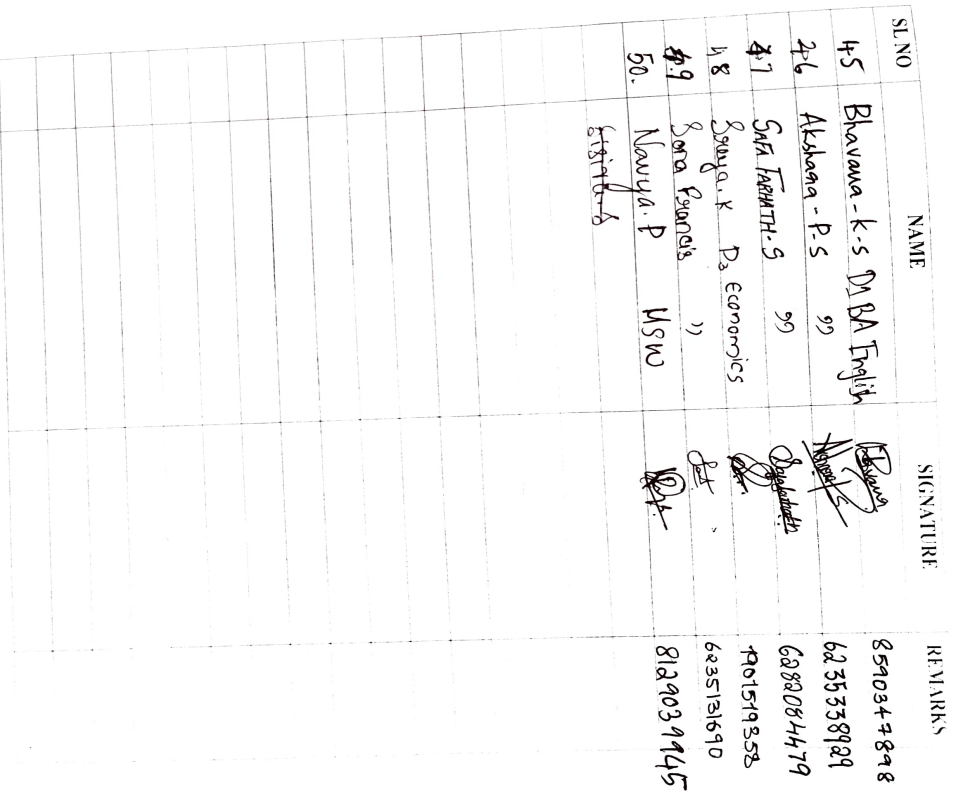 SL NO NAME SIGNATURE REMARKS
45 Bhavana - k - s D1 BA English 8590347898
46 Akshaga - P - S ,, 6235338929
47 SAFA FARHATH - S ,, 6282084479
48 Sraya . K D3 Economics 7901519358
49 Sona Francis ,, 6235131690
50. Navya . P MSW 8129039945